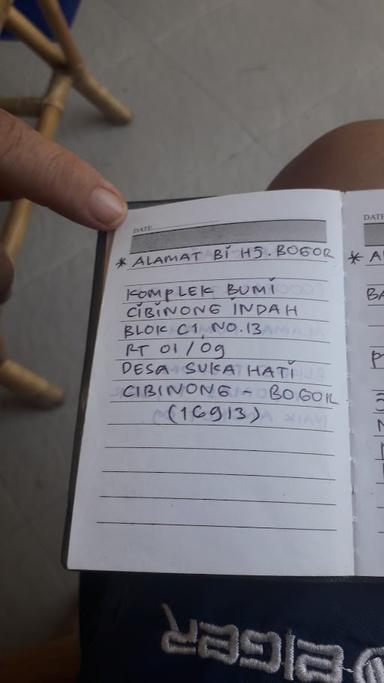 DATE
* ALAMAT BI HJ. BOGOR
KOMPLEK BUMI
CIBINONG INDAH
BLOK C1, NO. 13
RT 01/09
DESA SUKA HATI
CIBINONG - BOGOR
(16913)
DATE
* A
EIGER